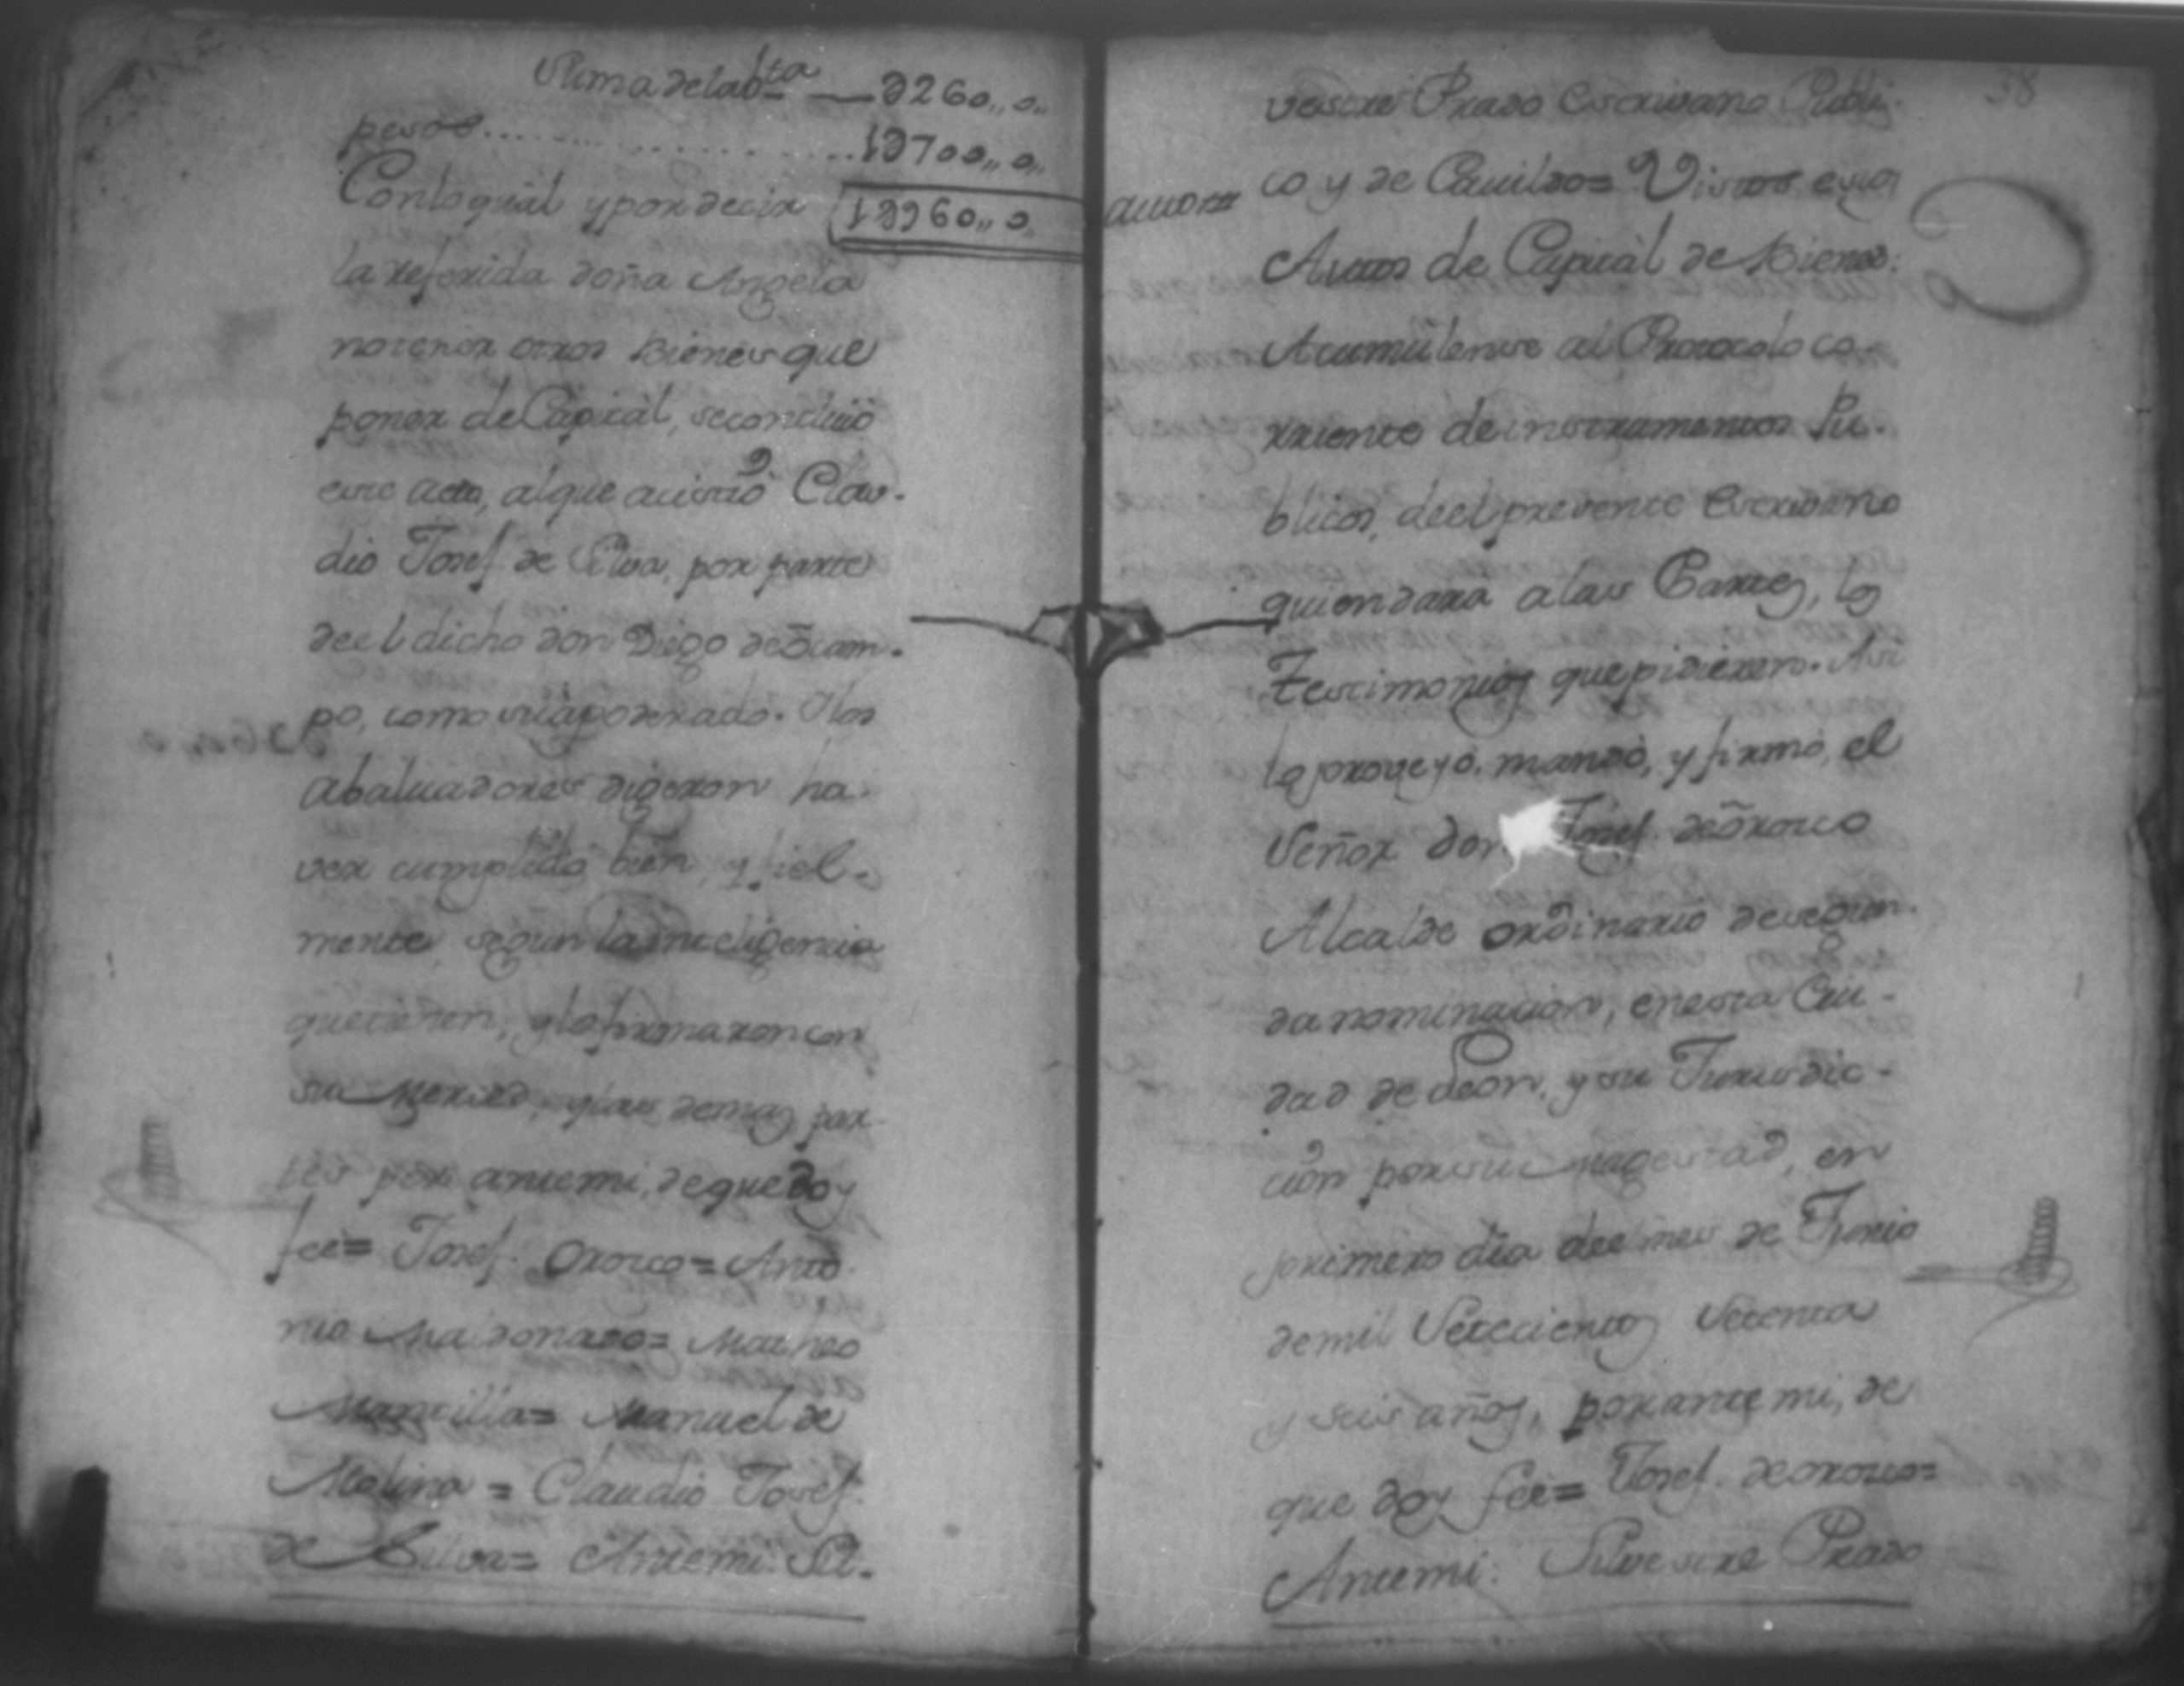 Suma de la b.ta — 9260,, 0,,
pesos .................. 19700,, 0,,
Con lo qual y por decir 19960,, 0,,
la referida doña Angela
no tener otros bienes que
poner de Capital, se concluió
este acto, al que asistió Clau-
dio Josef de Silva, por parte
de el dicho don Diego de Ocam-
po, como su apoderado. Y los
abaluadores digeron ha-
ver cumplido bien, y fiel-
mente, segun la inteligencia
que tienen, y lo firmaron con
su Merced, y las demas par-
tes por ante mi, de que doy
feé= Josef Orosco= Anto-
nio Maldonado= Matheo
Mancilla= Manuel de
Molina = Claudio Josef
de Silva= Ante mi: Sil-
38
vestre Prado Escrivano Publi-
Auto
co y de Cavildo= Vistos estos
Autos de Capital de Bienes:
Acumulense al Protocolo co-
rriente de instrumentos Pu-
blicos, de el presente Escrivano
quien dara a las Partes, los
testimonios que pidieren. Asi
lo proveyó, mandó, y firmó, el
Señor don Josef de Orosco
Alcalde ordinario de segun-
da nominacion, en esta Ciu-
dad de Leon, y su Jurisdic-
cion por su magestad, en
primero dia de el mes de Junio
de mil Setecientos Setenta
y seis años, por ante mi, de
que doy feé= Josef de orosco=
Ante mi: Silvestre Prado